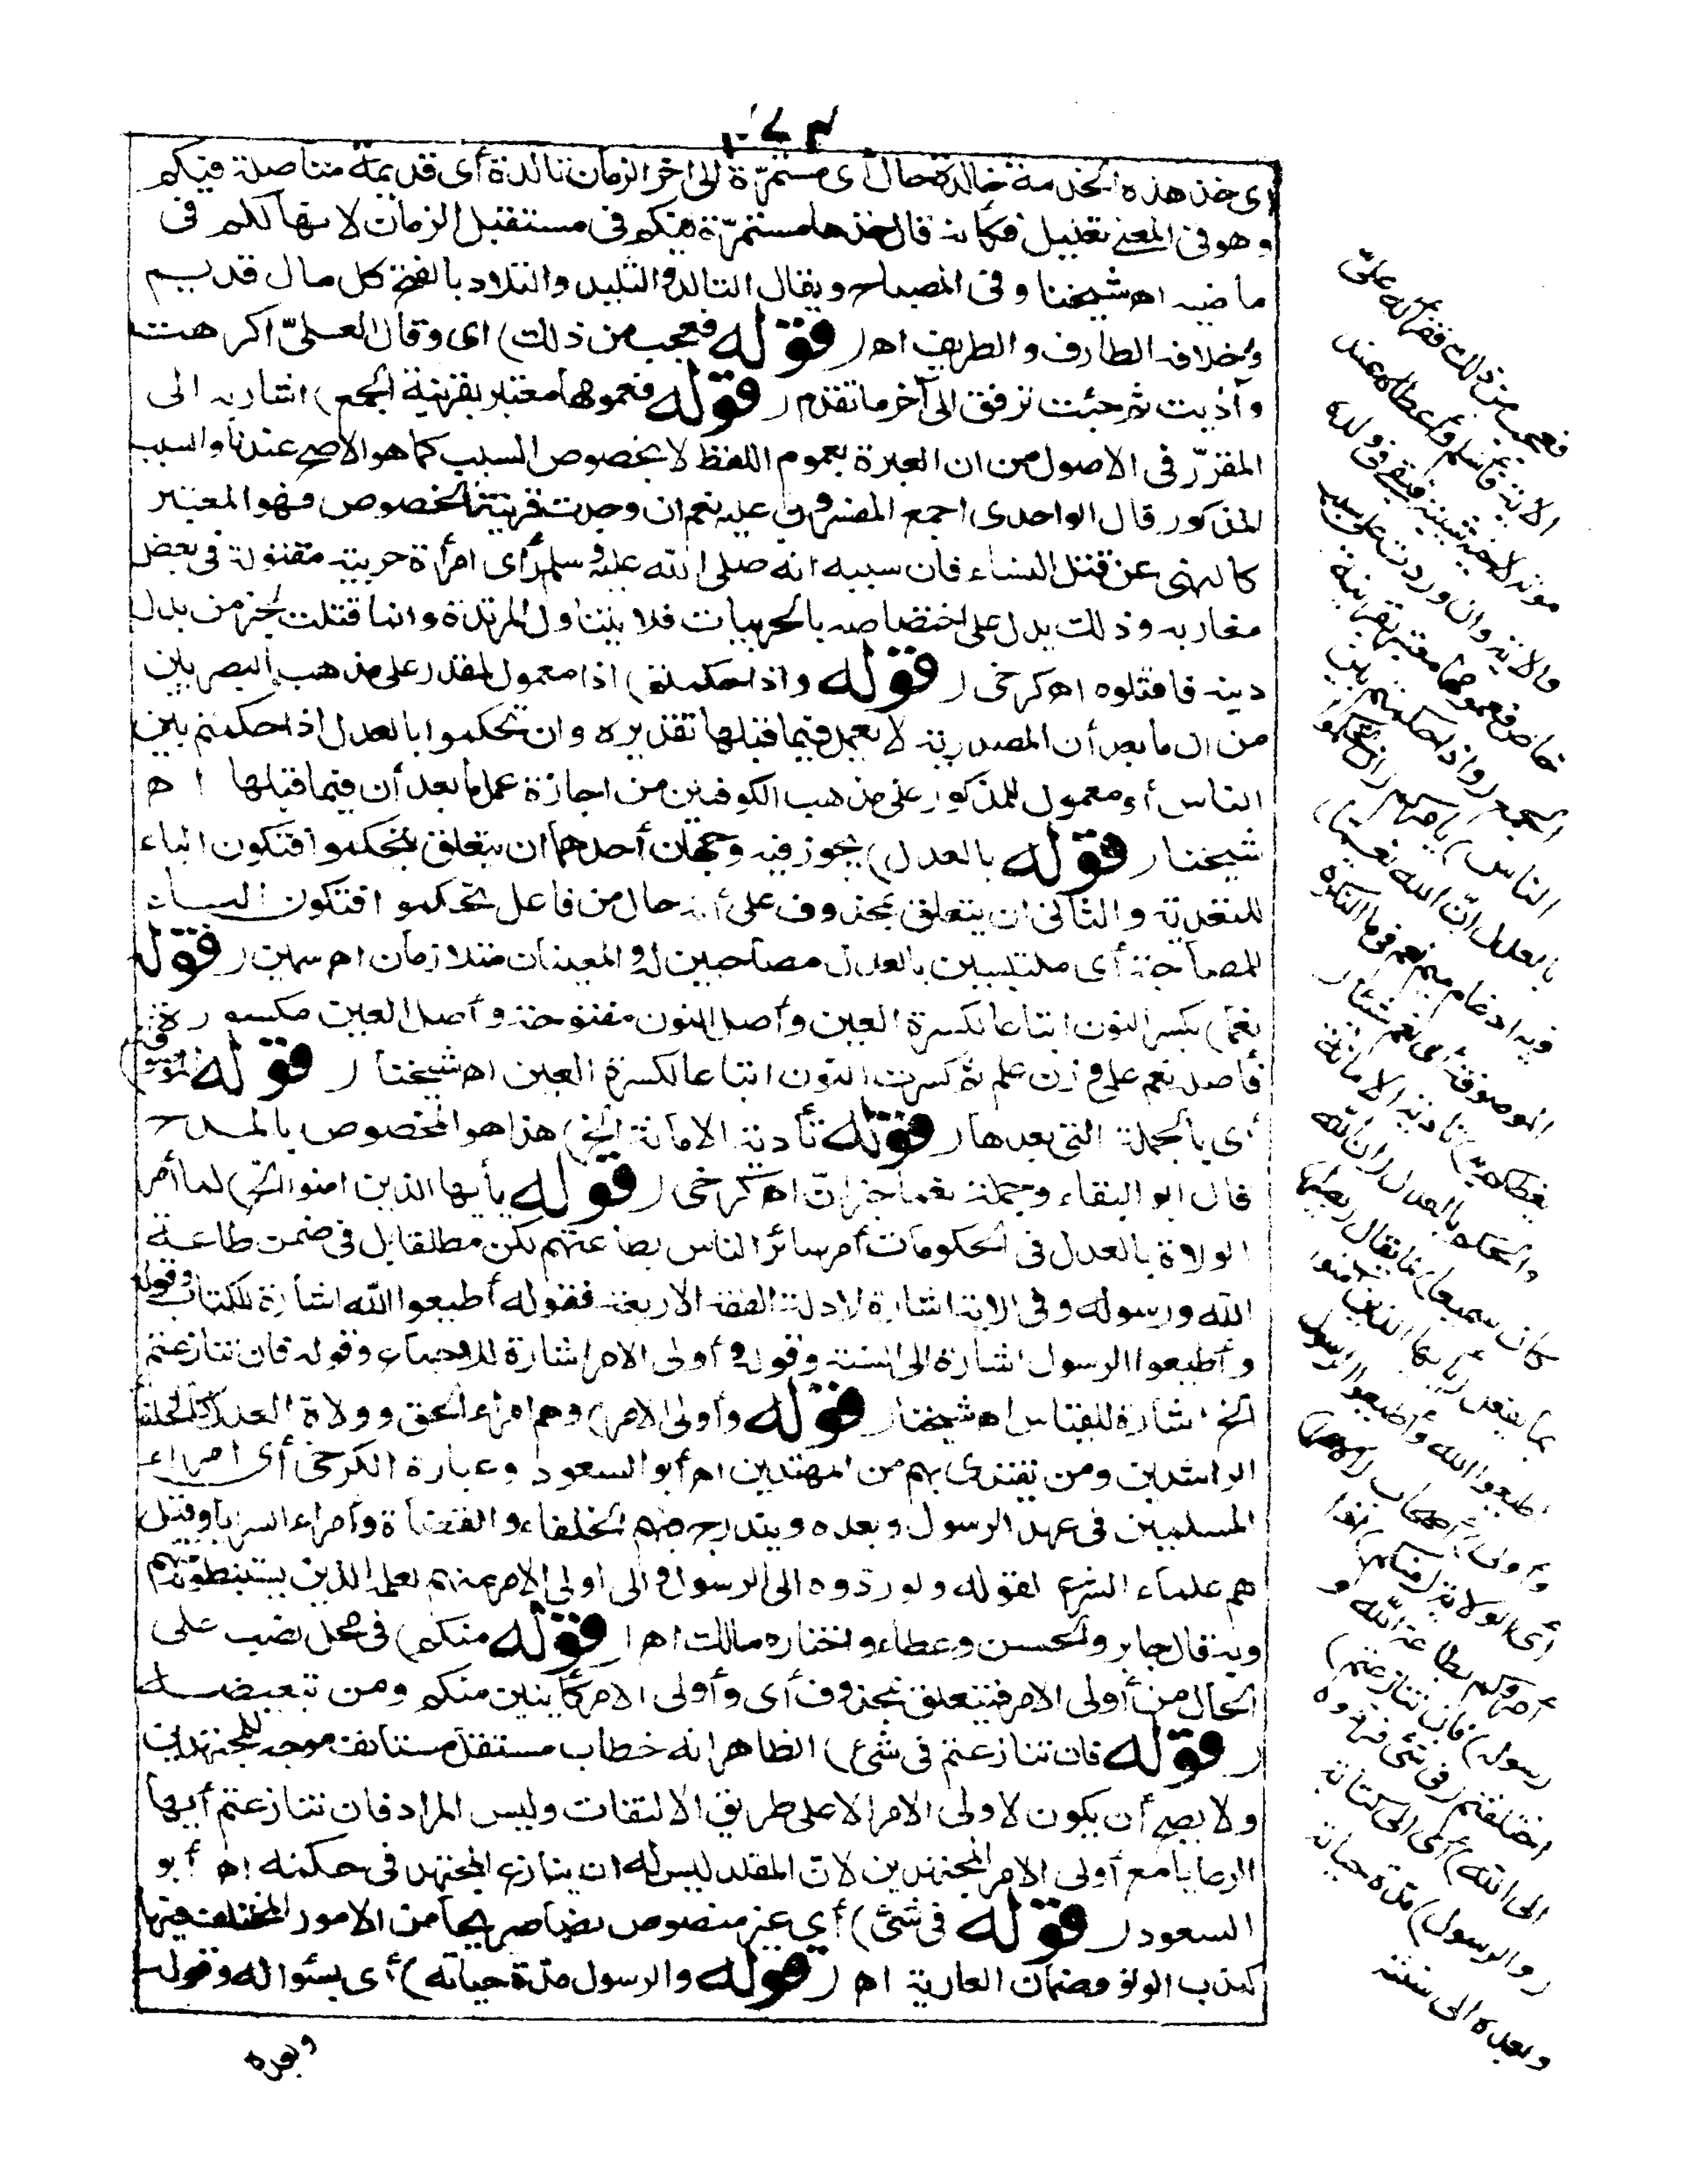 أى خذ هذه الخدمة خالدة حال أى مستمرّة الى اخر الزمان تالدة أى قديمة متأصلة فيكم
وهو فى المعنى تعليل فكأنه قال خذها مستمرّة فيكم فى مستقبل الزمان لانها لكم فى
ماضيه اه شيخنا وفى المصباح ويقال التالد والتليد والتلاد بالفتح كل مال قديم
وبخلافه الطارف والطريف اه ( قوله فعجب من ذلك) اى وقال لعلىّ اكرهت
وآذيت ثم جئت ترفق الى آخر ما تقدم ( قوله فعمومها معتبر بقرينة الجمع) اشار به الى
المقرّر فى الاصول من ان العبرة بعموم اللفظ لا بخصوص السبب كما هو الاصح عندنا والسبب
المذكور قال الواحدى اجمع المفسرون عليه نعم ان وجدت قرينة الخصوص فهو المعتبر
كالنهى عن قتل النساء فان سببه انه صلى الله عليه وسلم رأى امرأة حربية مقتولة فى بعض
مغازيه وذلك يدل على اختصاصه بالحربيات فلا يتناول المرتدة وانما قتلت لخبر من بدل
دينه فاقتلوه اه كرخى ( قوله واذا حكمتم) اذا معمول لمقدر على مذهب البصريين
من ان ما بعد أن المصدرية لا يعمل فيما قبلها تقديره وان تحكموا بالعدل اذا حكمتم بين
الناس أو معمول للمذكور على مذهب الكوفيين من اجازة عمل ما بعد أن فيما قبلها اه
شيخنا ( قوله بالعدل) يجوز فيه وجهان أحدهما ان يتعلق بتحكموا فتكون الباء
للتعدية والثانى ان يتعلق بمحذوف على أنه حال من فاعل تحكموا فتكون الباء
للمصاحبة أى ملتبسين بالعدل مصاحبين له والمعنيان متلازمان اه سمين ( قوله
نعما) بكسر النون اتباعا لكسرة العين وأصل النون مفتوحة وأصل العين مكسورة
فأصله نعم على وزن علم ثم كسرت النون اتباعا لكسرة العين اه شيخنا ( قوله
أى بالجملة التى بعدها ( قوله تأدية الامانة الخ) هذا هو المخصوص بالمدح
قال ابو البقاء وجملة نعما خبر انّ اه كرخى ( قوله يأيها الذين امنوا الخ) لما أمر
الولاة بالعدل فى الحكومات أمر سائر الناس بطاعتهم لكن مطلقا بل فى ضمن طاعة
الله ورسوله وفى الاية اشارة لادلة الفقه الاربعة فقوله أطيعوا الله اشارة للكتاب وقوله
وأطيعوا الرسول اشارة الى السنة وقوله وأولى الامر اشارة للاجماع وقوله فان تنازعتم
الخ اشارة للقياس اه شيخنا ( قوله وأولى الامر) وهم امراء الحق وولاة العدل كالخلفاء
الراشدين ومن يقتدى بهم من المهتدين اه أبو السعود وعبارة الكرخى أى امراء
المسلمين فى عهد الرسول وبعده ويندرج فيهم الخلفاء والقضاة وأمراء السرايا وقيل
هم علماء الشرع لقوله ولو ردوه الى الرسول والى اولى الامر منهم لعلمه الذين يستنبطونه منهم
وبه قال جابر والحسن وعطاء واختاره مالك اه ( قوله منكم) فى محل نصب على
الحال من أولى الامر فيتعلق بمحذوف أى وأولى الامر كائنين منكم ومن تبعيضية
( قوله فان تنازعتم فى شئ) الظاهر انه خطاب مستقل مستأنف موجه للمجتهدين
ولا يصح أن يكون لاولى الامر الا على طريق الالتفات وليس المراد فان تنازعتم أيها
الرعايا مع أولى الامر المجتهدين لان المقلد ليس له ان ينازع المجتهد فى حكمه اه أبو
السعود ( قوله فى شئ) أى غير منصوص نصا صريحا من الامور المختلف فيها
كندب الوتر وضمان العارية اه ( قوله والرسول مدّة حياته) أى بسئواله وقوله
وبعده
فعجب من ذلك فقرأ له علىّ
الاية فأسلم وأعطاه عند
موته لاخيه شيبة فبقى فى ولده
والاية وان وردت على سبب
خاص فعمومها معتبر بقرينة
الجمع (واذا حكمتم بين
الناس) يأمركم (ان تحكموا
بالعدل انّ الله نعما)
فيه ادغام ميم نعم فى ما النكرة
الموصوفة أى نعم شئا (
يعظكم به) تأدية الامانة
والحكم بالعدل (ان الله
كان سميعا) لما يقال (بصيرا)
بما يفعل (يأيها الذين امنوا
أطيعوا الله وأطيعوا الرسول
وأولى) أصحاب (الامر)
أى الولاية (منكم) اذا
أمروكم بطاعة الله و
رسوله (فان تنازعتم)
اختلفتم (فى شئ فردوه
الى الله) أى الى كتابه
(والرسول) مدّة حياته
وبعده الى سنته